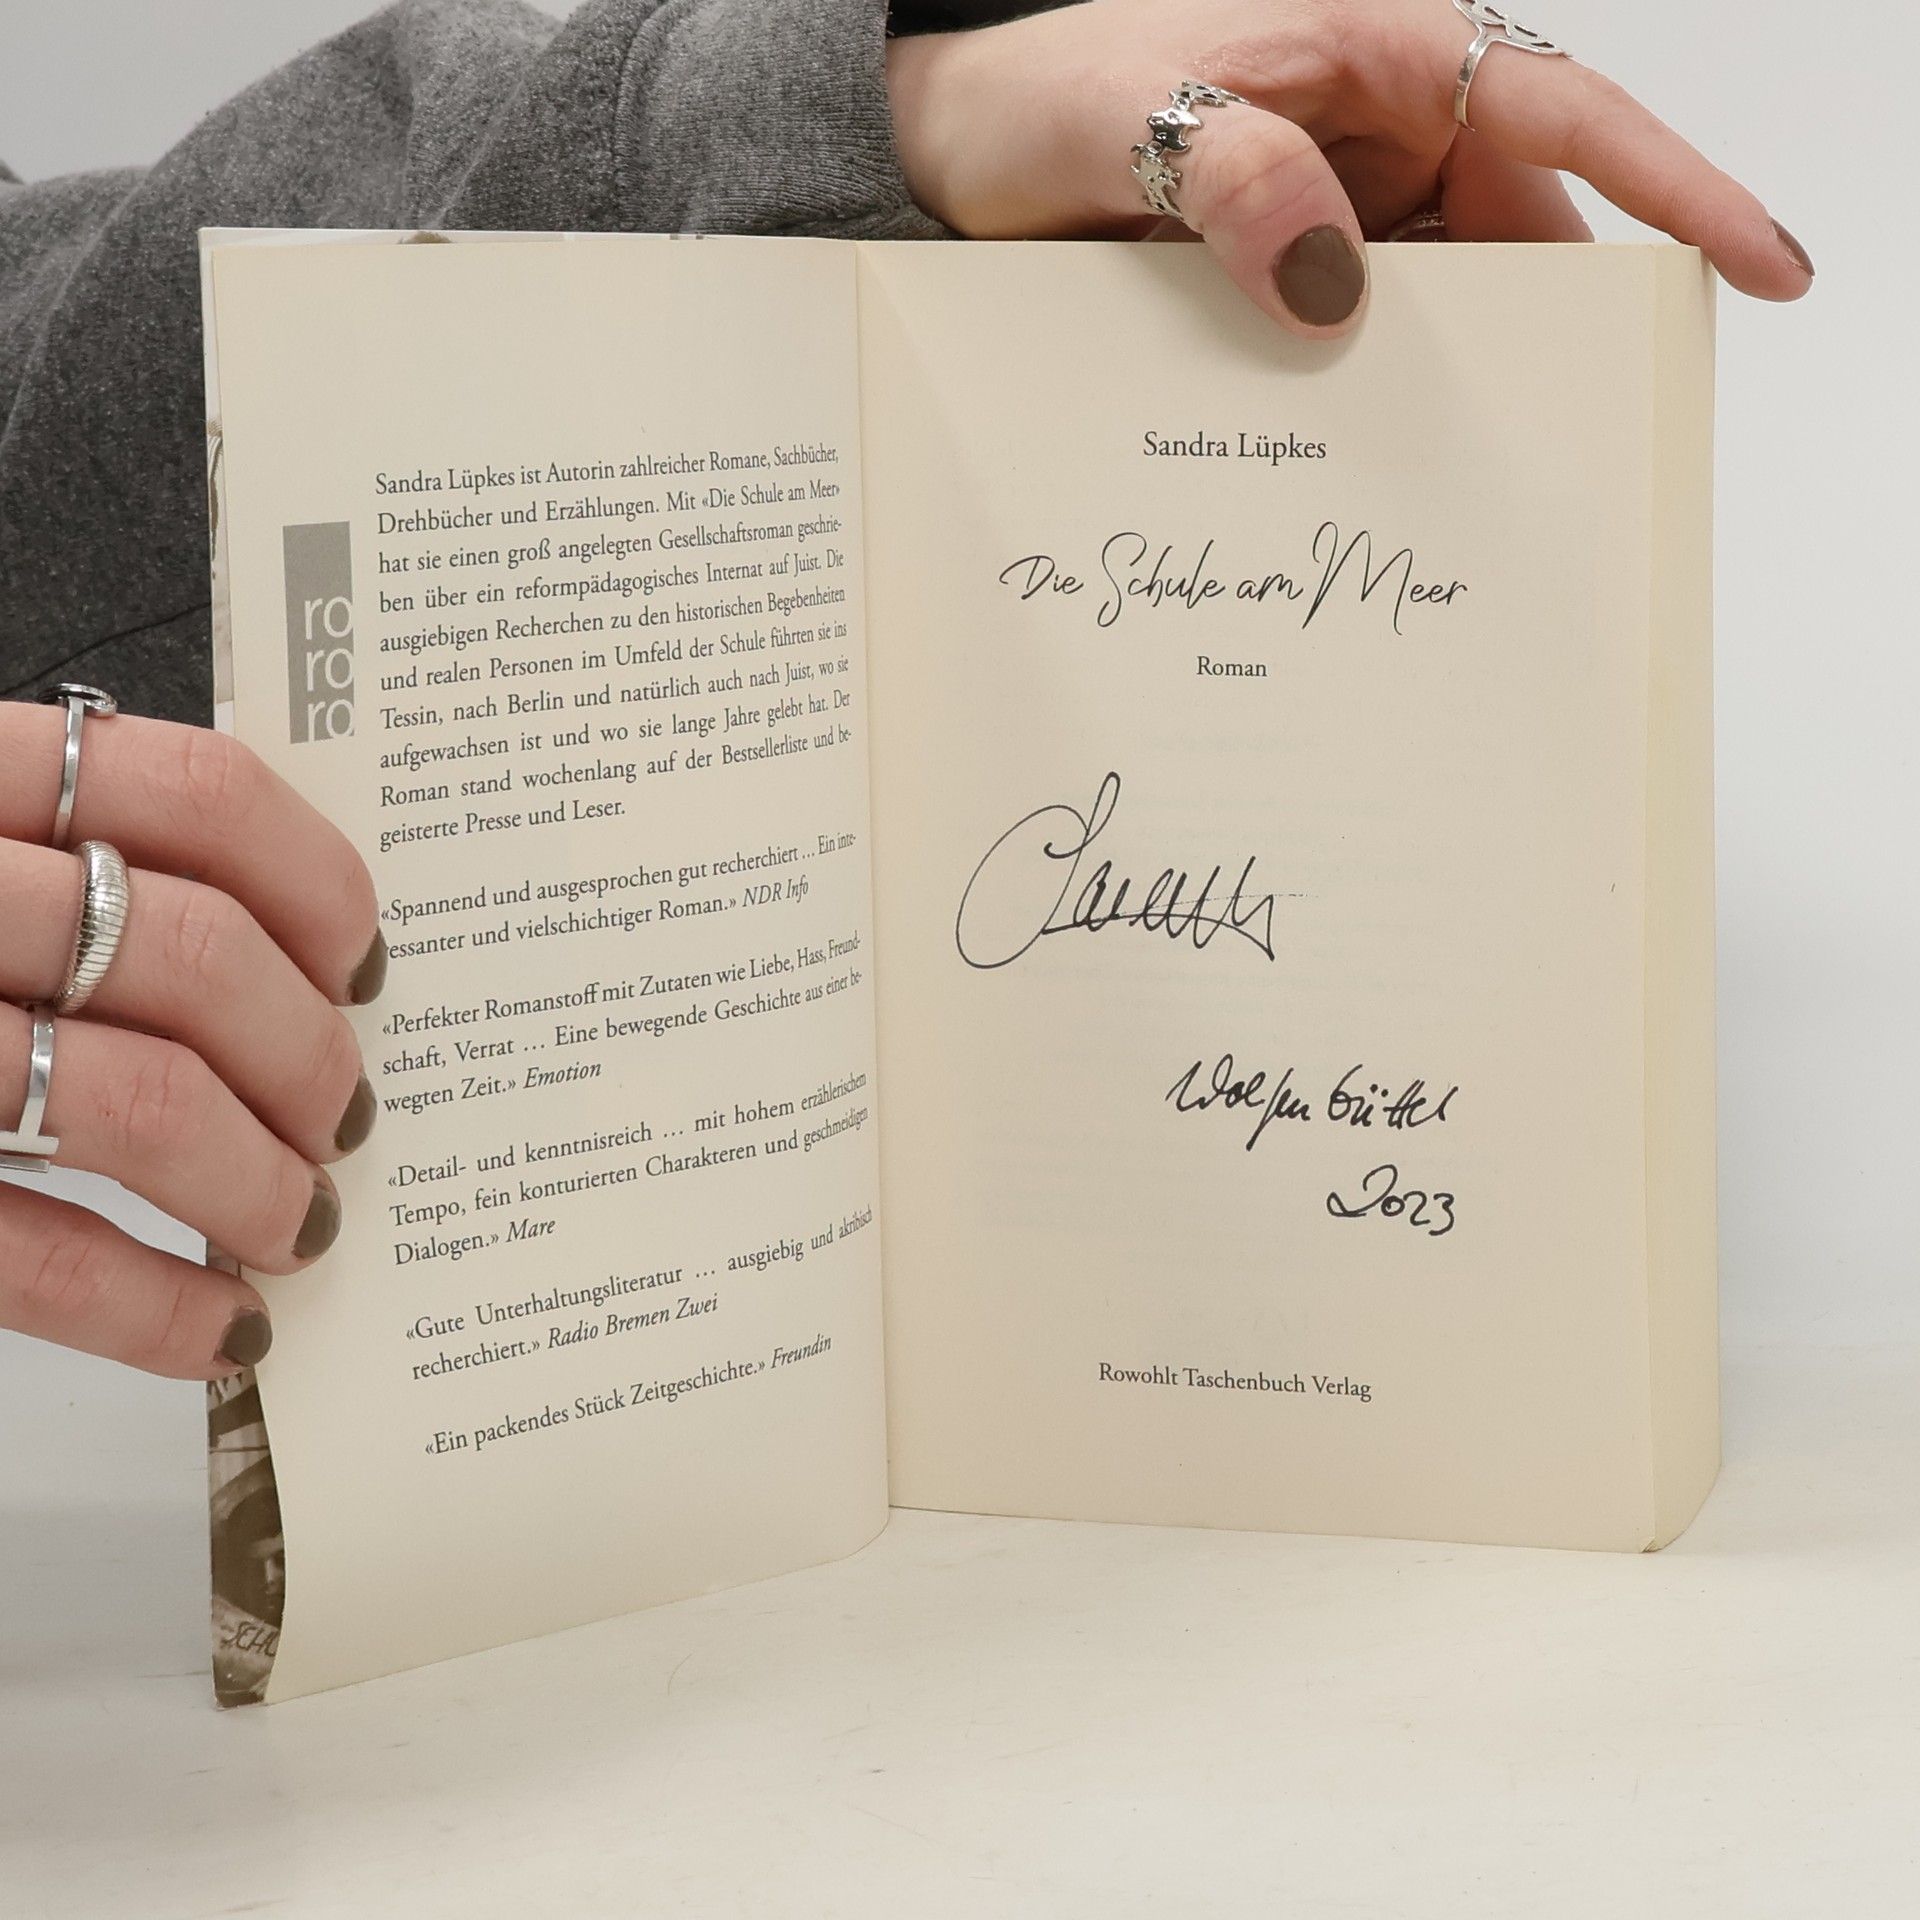 ro
ro
ro
Sandra Lüpkes ist Autorin zahlreicher Romane, Sachbücher,
Drehbücher und Erzählungen. Mit «Die Schule am Meer»
hat sie einen groß angelegten Gesellschaftsroman geschrie-
ben über ein reformpädagogisches Internat auf Juist. Die
ausgiebigen Recherchen zu den historischen Begebenheiten
und realen Personen im Umfeld der Schule führten sie ins
Tessin, nach Berlin und natürlich auch nach Juist, wo sie
aufgewachsen ist und wo sie lange Jahre gelebt hat. Der
Roman stand wochenlang auf der Bestsellerliste und be-
geisterte Presse und Leser.
«Spannend und ausgesprochen gut recherchiert … Ein inte-
ressanter und vielschichtiger Roman.» NDR Info
«Perfekter Romanstoff mit Zutaten wie Liebe, Hass, Freund-
schaft, Verrat … Eine bewegende Geschichte aus einer be-
wegten Zeit.» Emotion
«Detail- und kenntnisreich … mit hohem erzählerischem
Tempo, fein konturierten Charakteren und geschmeidigen
Dialogen.» Mare
«Gute Unterhaltungsliteratur … ausgiebig und akribisch
recherchiert.» Radio Bremen Zwei
«Ein packendes Stück Zeitgeschichte.» Freundin
SCHU
Sandra Lüpkes
Die Schule am Meer
Roman
Wolfenbüttel
2023
Rowohlt Taschenbuch Verlag